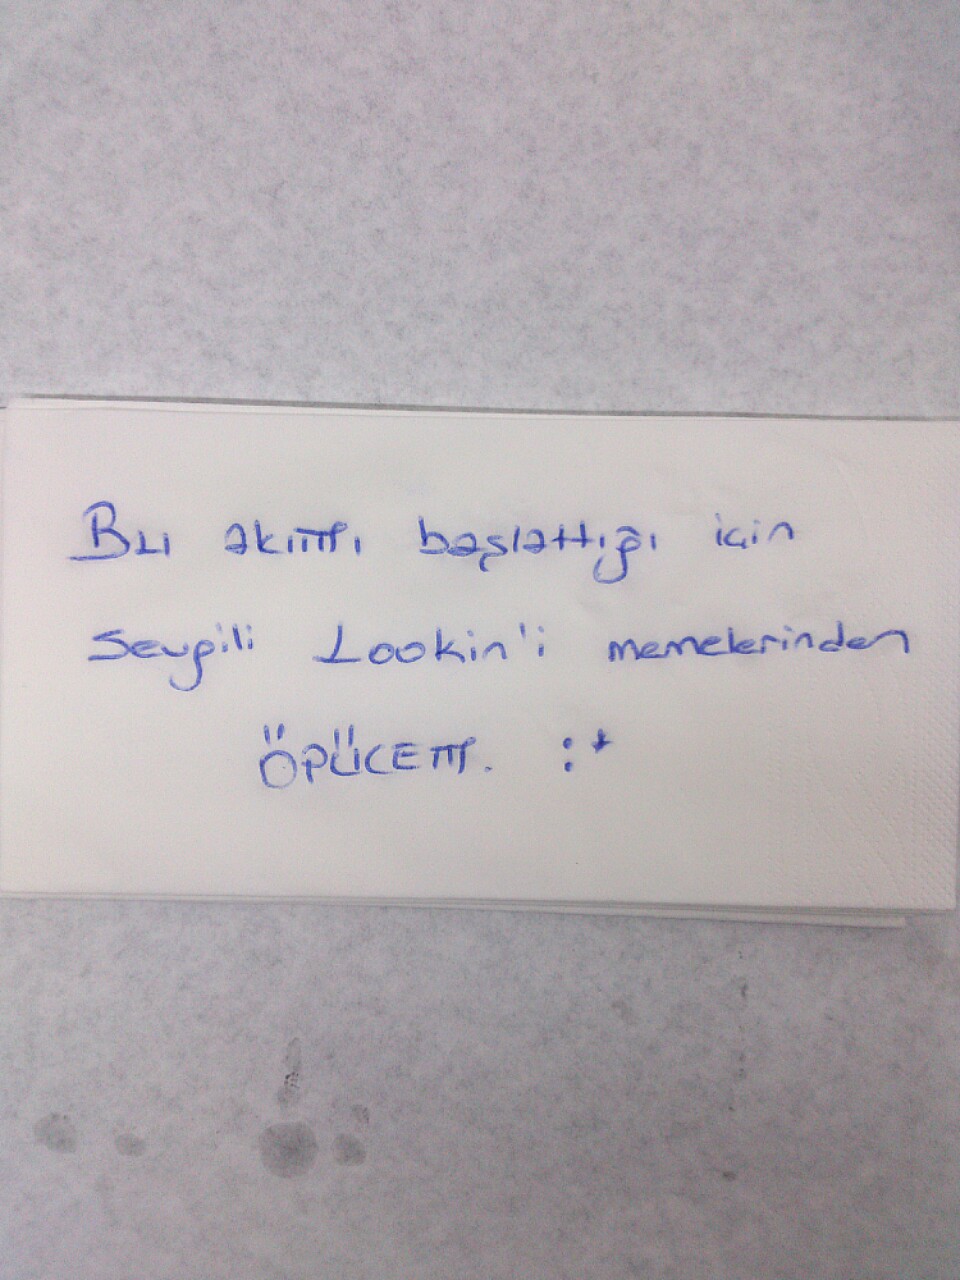 Bu akımı başlattığı için
Sevgili Lookin'i memelerinden
ÖPÜCEM. :*